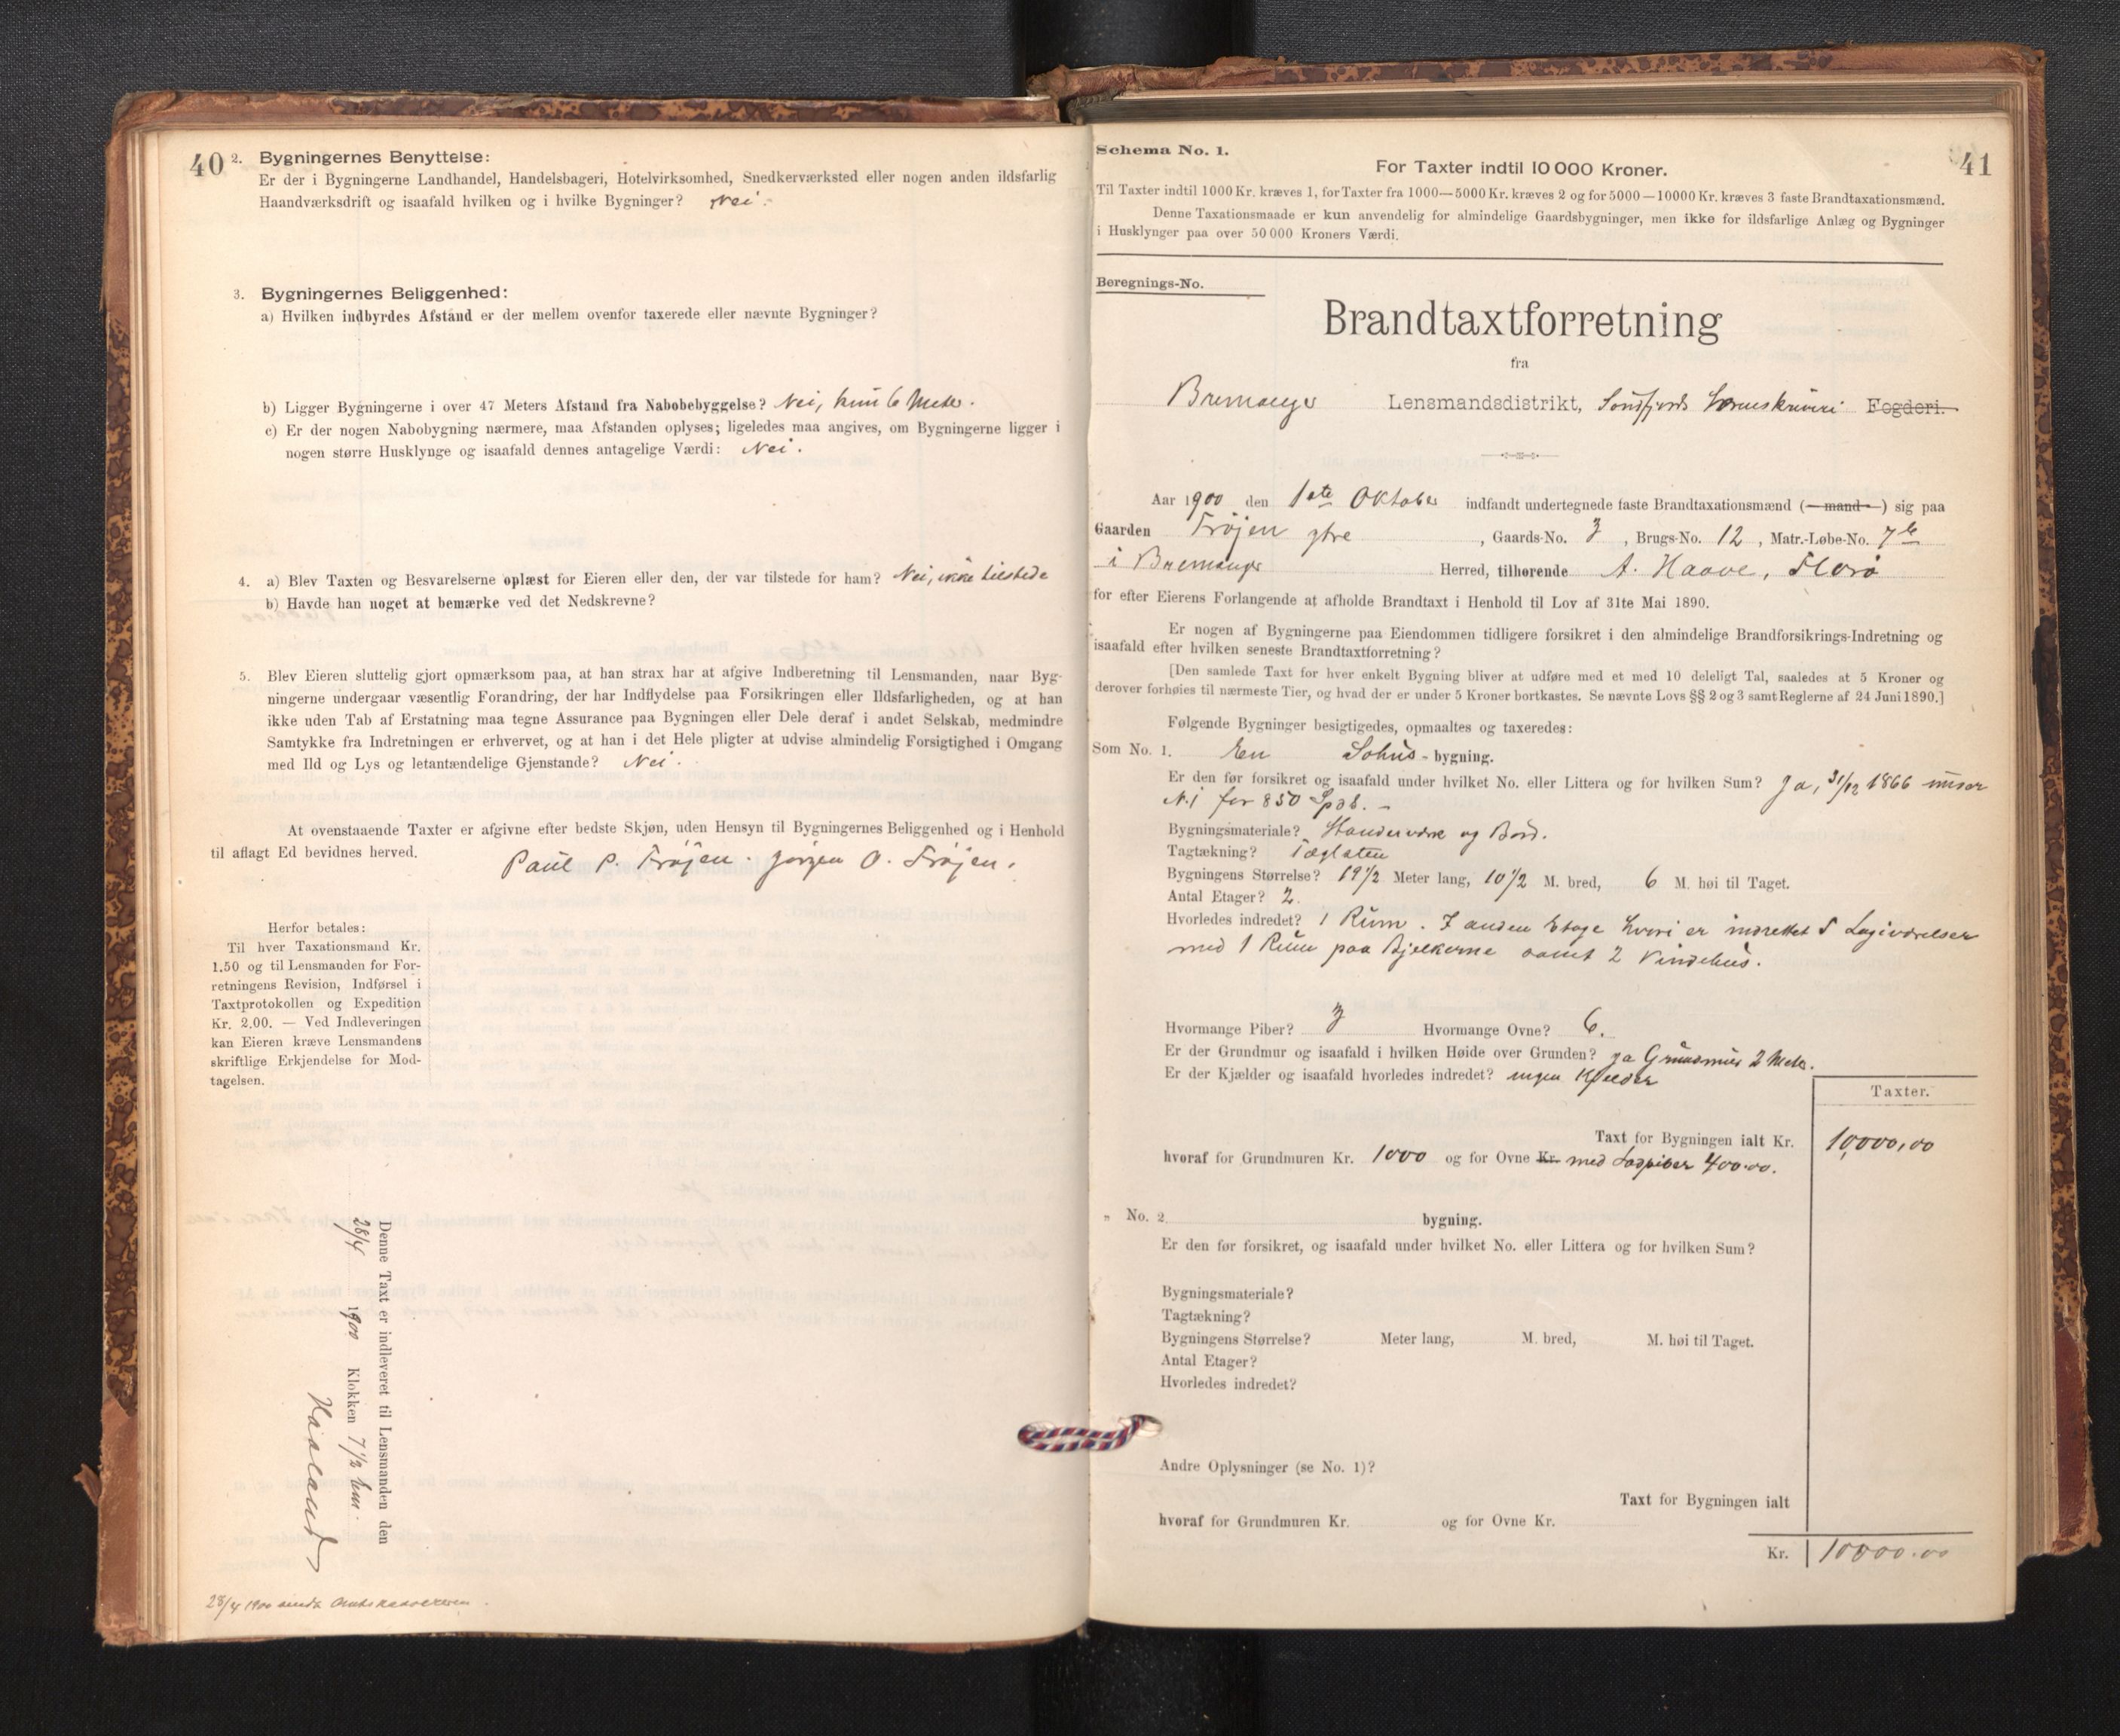 40
2. Bygningernes Benyttelse:
Er der i Bygningerne Landhandel, Handelsbageri, Hotelvirksomhed, Snedkerværksted eller nogen anden ildsfarlig
Haandværksdrift og isaafald hvilken og i hvilke Bygninger? Nei.
3. Bygningernes Beliggenhed:
a) Hvilken indbyrdes Afstand er der mellem ovenfor taxerede eller nævnte Bygninger?
b) Ligger Bygningerne i over 47 Meters Afstand fra Nabobebyggelse? Nei, kun 6 Meter.
c) Er der nogen Nabobygning nærmere, maa Afstanden oplyses; ligeledes maa angives, om Bygningerne ligger i
nogen større Husklynge og isaafald dennes antagelige Værdi: Nei.
4. a) Blev Taxten og Besvarelserne oplæst for Eieren eller den, der var tilstede for ham? Nei, ikke tilstede
b) Havde han noget at bemærke ved det Nedskrevne?
5. Blev Eieren sluttelig gjort opmærksom paa, at han strax har at afgive Indberetning til Lensmanden, naar Byg-
ningerne undergaar væsentlig Forandring, der har Indflydelse paa Forsikringen eller Ildsfarligheden, og at han
ikke uden Tab af Erstatning maa tegne Assurance paa Bygningen eller Dele deraf i andet Selskab, medmindre
Samtykke fra Indretningen er erhvervet, og at han i det Hele pligter at udvise almindelig Forsigtighed i Omgang
med Ild og Lys og letantændelige Gjenstande? Nei.
At ovenstaaende Taxter er afgivne efter bedste Skjøn, uden Hensyn til Bygningernes Beliggenhed og i Henhold
til aflagt Ed bevidnes herved.
Paul P. Frøjen. Jørgen O. Frøjen.
Herfor betales:
Til hver Taxationsmand Kr.
1.50 og til Lensmanden for For-
retningens Revision, Indførsel i
Taxtprotokollen og Expedition
Kr. 2.00. — Ved Indleveringen
kan Eieren kræve Lensmandens
skriftlige Erkjendelse for Mod-
tagelsen.
Denne Taxt er indleveret til Lensmanden den
28/4 1900 Klokken 7 1/2
Haaland
28/4 1900 sendt Amtskassereren.
41
Schema No. 1.
For Taxter indtil 10 000 Kroner.
Til Taxter indtil 1000 Kr. kræves 1, for Taxter fra 1000—5000 Kr. kræves 2 og for 5000—10000 Kr. kræves 3 faste Brandtaxationsmænd.
Denne Taxationsmaade er kun anvendelig for almindelige Gaardsbygninger, men ikke for ildsfarlige Anlæg og Bygninger
i Husklynger paa over 50 000 Kroners Værdi.
Beregnings-No.
Brandtaxtforretning
fra
Bremanger Lensmandsdistrikt, Søndfjords Sorenskriveri Fogderi.
Aar 1900 den 1ste Oktober indfandt undertegnede faste Brandtaxationsmænd (—mand—) sig paa
Gaarden Frøjen ytre, Gaards-No. 3, Brugs-No. 12, Matr.-Løbe-No. 7
i Bremanger Herred, tilhørende A. Haave, Florø
for efter Eierens Forlangende at afholde Brandtaxt i Henhold til Lov af 31te Mai 1890.
Er nogen af Bygningerne paa Eiendommen tidligere forsikret i den almindelige Brandforsikrings-Indretning og
isaafald efter hvilken seneste Brandtaxtforretning?
[Den samlede Taxt for hver enkelt Bygning bliver at udføre med et med 10 deleligt Tal, saaledes at 5 Kroner og
derover forhøies til nærmeste Tier, og hvad der er under 5 Kroner bortkastes. Se nævnte Lovs §§ 2 og 3 samt Reglerne af 24 Juni 1890.]
Følgende Bygninger besigtigedes, opmaaltes og taxeredes:
Som No. 1. En Søhus-bygning.
Er den før forsikret og isaafald under hvilket No. eller Littera og for hvilken Sum? Ja, 31/12 1866 under
N. 1 for 850 Spd. –
Bygningsmateriale? Standerværk og Bord.
Tagtækning? Tæglsten
Bygningens Størrelse? 19 1/2 Meter lang, 10 1/2 M. bred, 6 M. høi til Taget.
Antal Etager? 2.
Hvorledes indredet? 1 Rum. I anden Etage hvori er indrettet 5 Logiværelser
med 1 Rum paa Bjelkerne samt 2 Vindehus.
Hvormange Piber? 3 Hvormange Ovne? 6.
Er der Grundmur og isaafald i hvilken Høide over Grunden? Ja Grundmur 2 Meter.
Er der Kjælder og isaafald hvorledes indredet? ingen Kjelder
Taxter.
Taxt for Bygningen ialt Kr. 10,000,00
hvoraf for Grundmuren Kr. 1000 og for Ovne Kr. med 400.00.
„ No. 2 bygning.
Er den før forsikret, og isaafald under hvilket No. eller Littera og for hvilken Sum?
Bygningsmateriale?
Tagtækning?
Bygningens Størrelse? Meter lang, M. bred, M. høi til Taget.
Antal Etager?
Hvorledes indredet?
Andre Oplysninger (se No. 1)?
Taxt for Bygningen ialt
hvoraf for Grundmuren Kr. og for Ovne Kr.
Kr. 10000.00